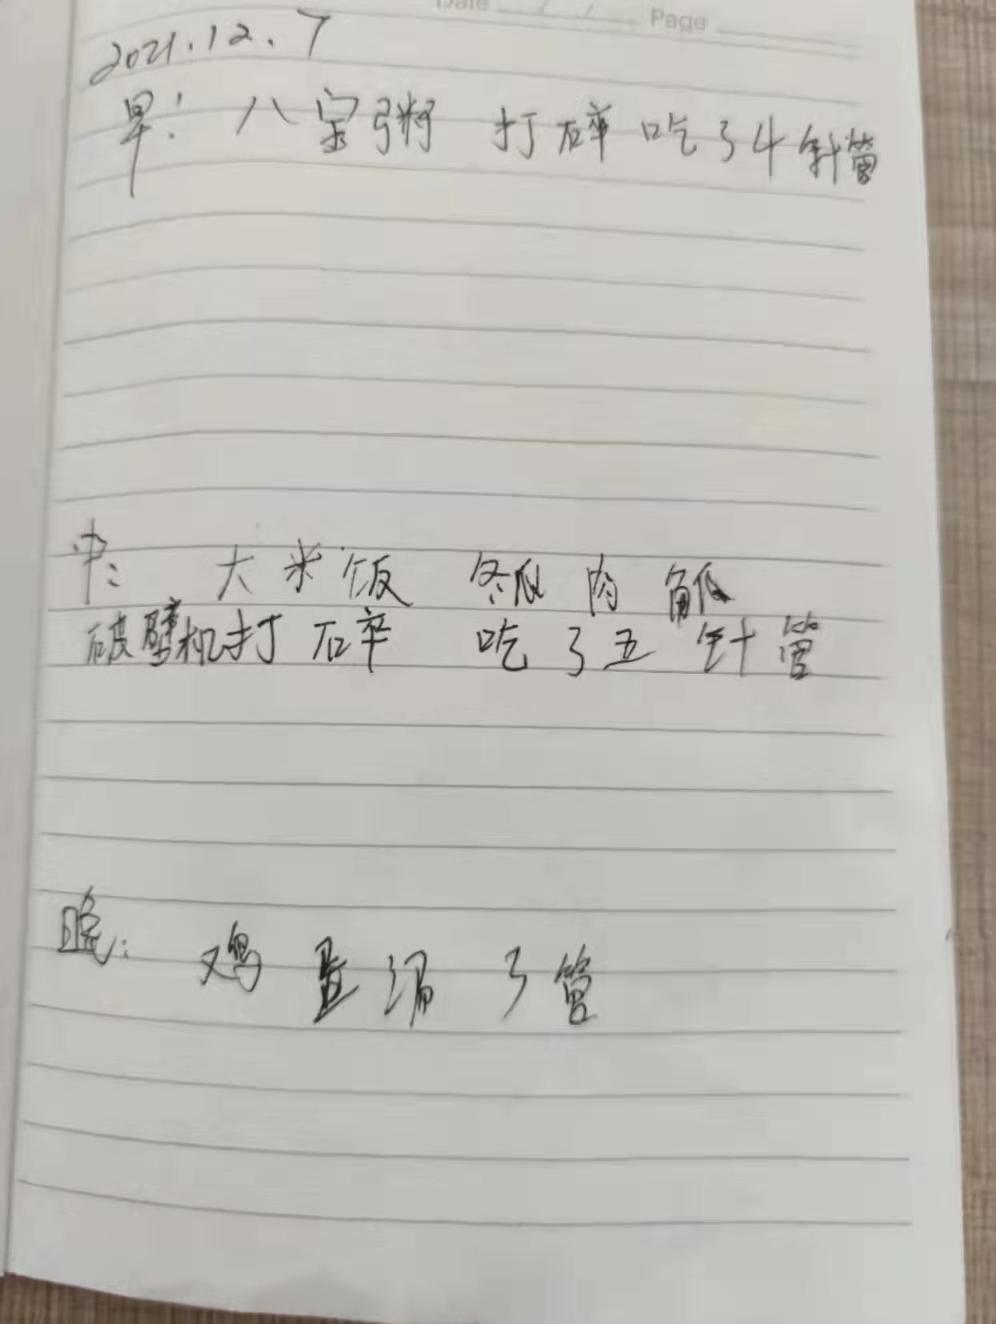 Date / / Page
2021.12.7
早: 八宝粥 打碎 吃了4针管
中: 大米饭 冬瓜 肉
破壁机打碎 吃了五针管
晚: 鸡 管